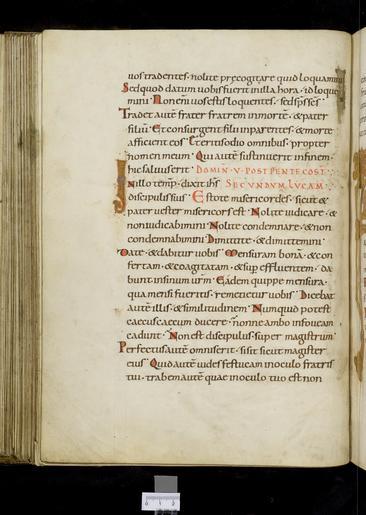 uos tradentes · nolite pręcogitare quid loquamini
Sed quod datum uobis fuerit in illa hora · id loque
mini · Non eni uos estis loquentes · sed sps scs
Tradet aute frater fratrem in morte · & pater
filiu · Et consurgent filii in parentes · & morte
afficient eos · Et eritis odio omnibus · propter
nomen meum · Qui aute sustinuerit in finem ·
hic saluus erit DOMIN · V · POST PENTECOST
In illo temp · dixit ihs SECUNDUM LUCAM
discipulis suis Estote misericordes · sicut &
pater uester misericors est · Nolite iudicare · &
non iudicabimini · Nolite condemnare · & non
condemnabimini · Dimittite · & dimittemini
Date · & dabitur uobis · Mensuram bona · & con
fertam · & coagitatam · & sup effluentem · da
bunt in sinum urm · Eadem quippe mensura ·
qua mensi fueritis · remetietur uobis · Dicebat
aute illis · & similitudinem · Numquid potest
caecus caecum ducere · nonne ambo in foueam
cadunt · Non est discipulus · super magistrum ·
Perfectus aute omnis erit · si sit sicut magister
eius · Quid aute uides festuca in oculo fratris
tui · trabem aute quae in oculo tuo est non